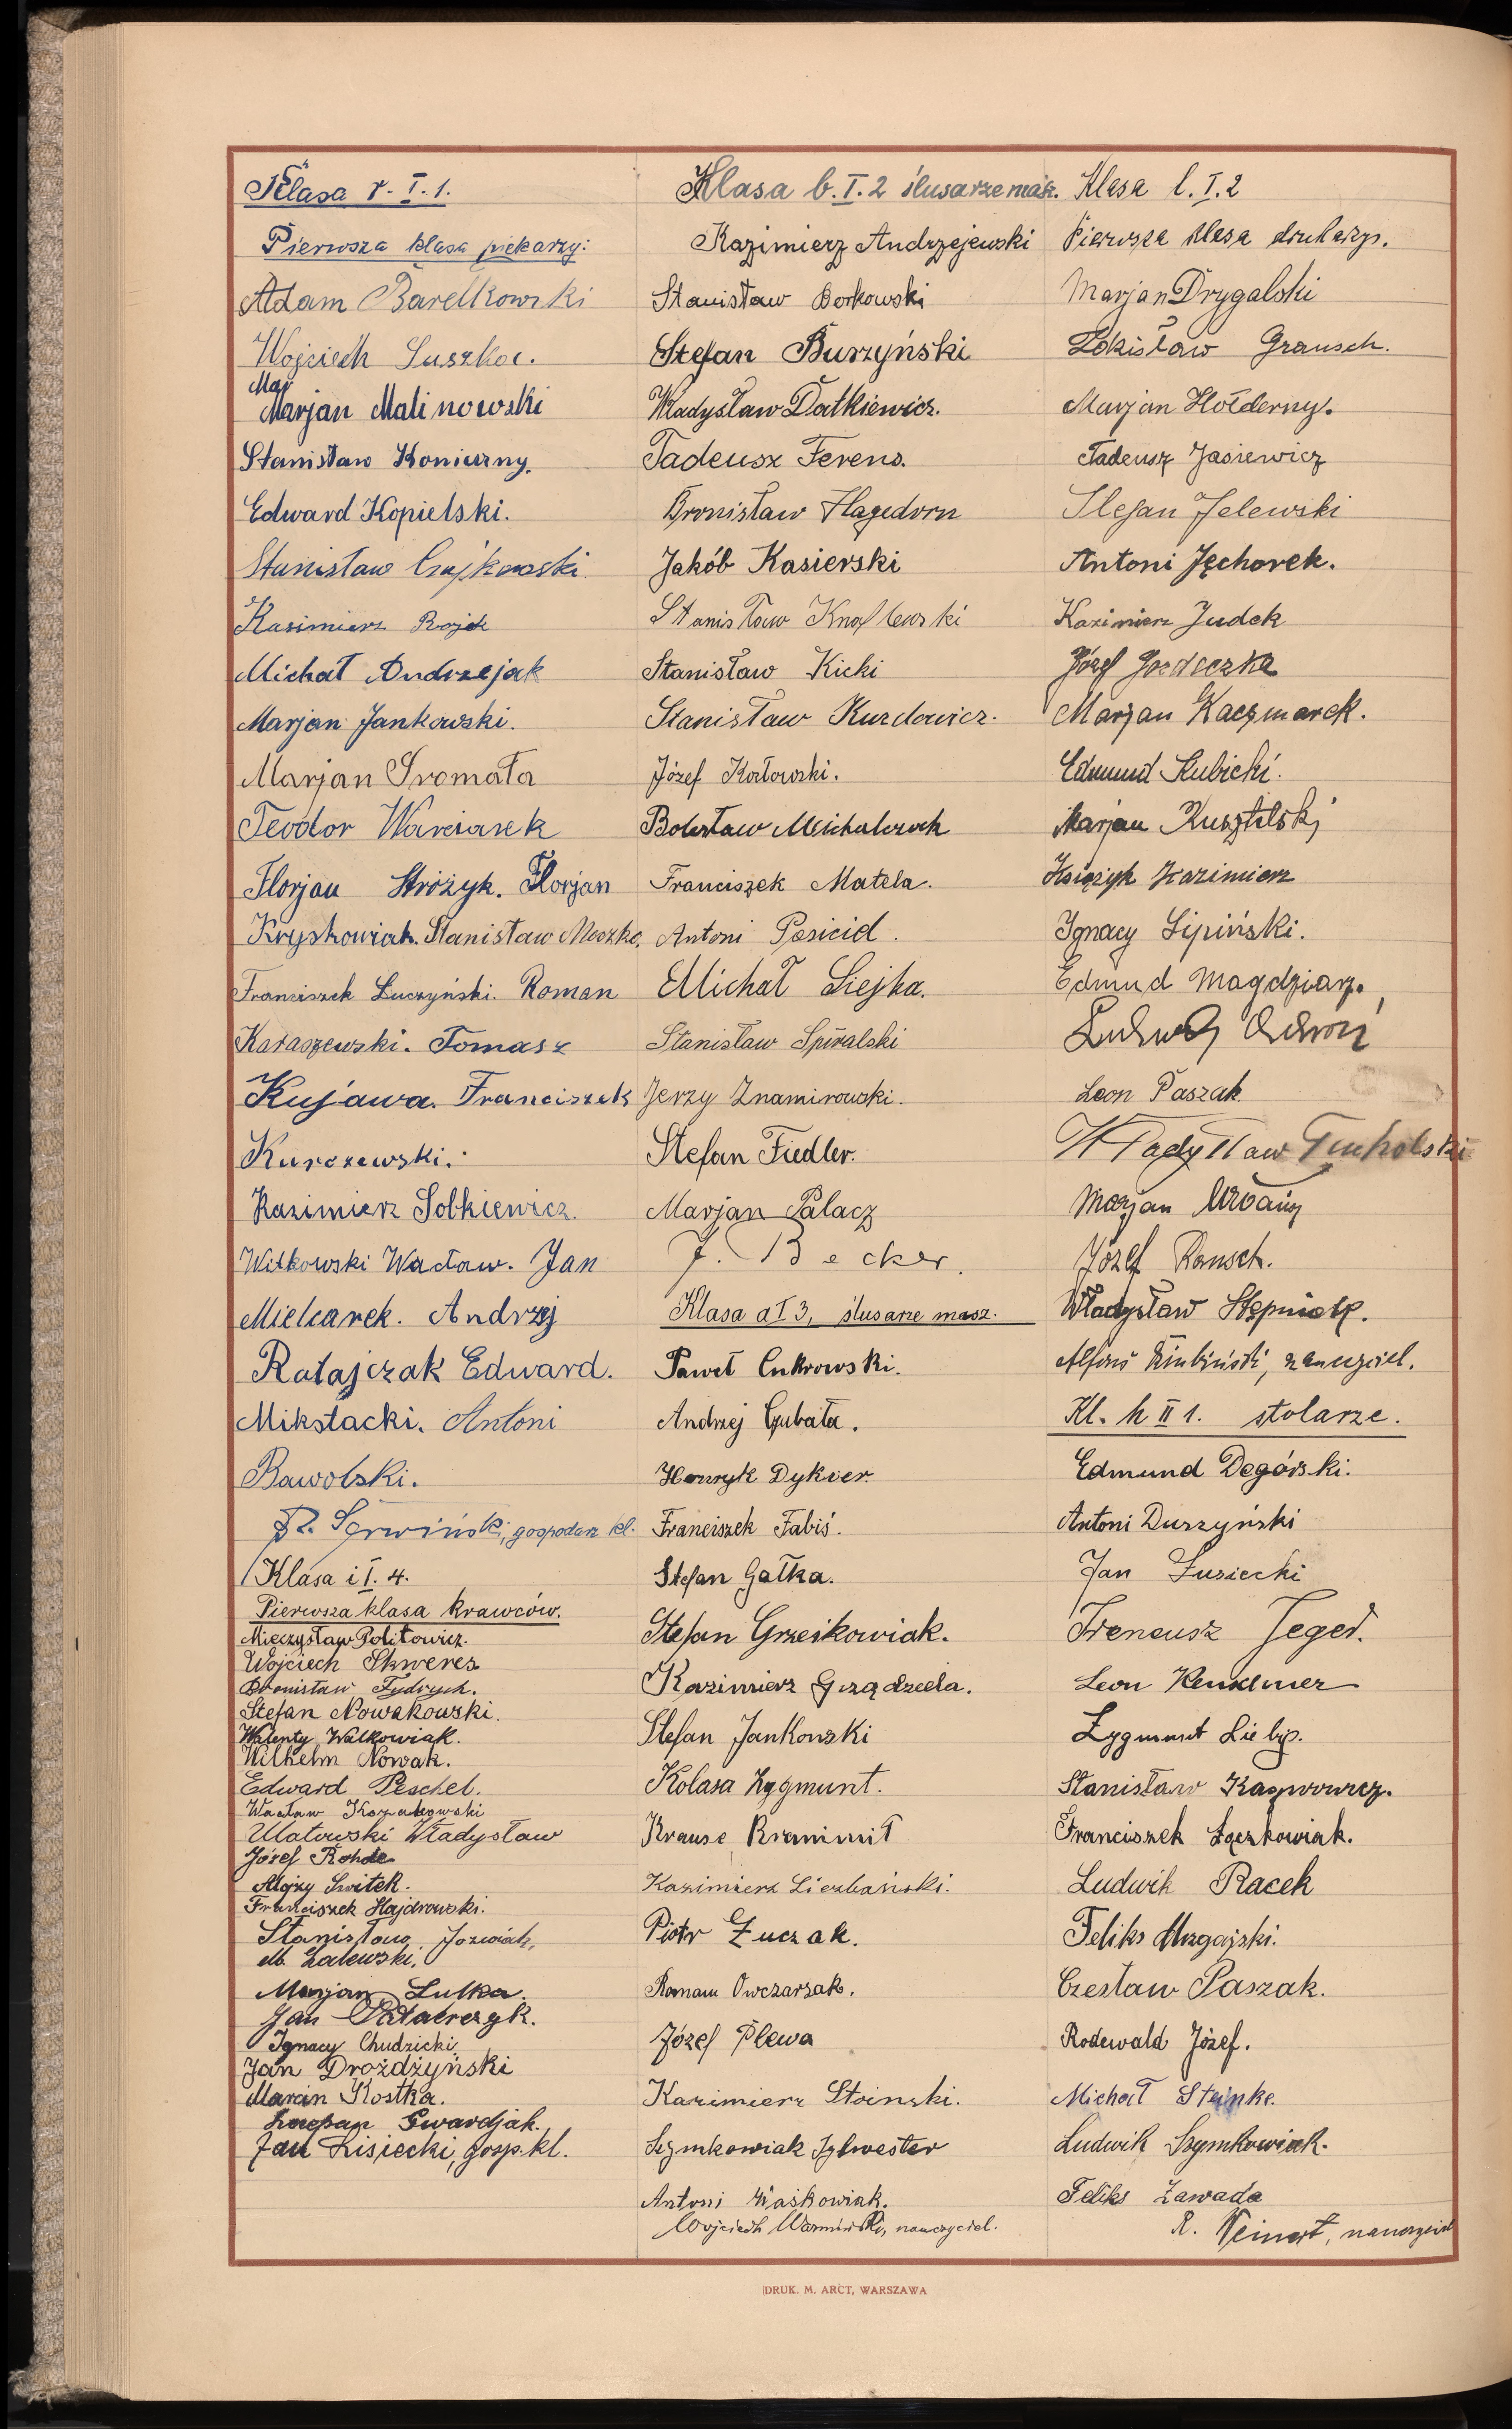 Klasa r. I. 1.
Pierwsza klasa piekarzy:
Adam Barełkowski
Wojciech Suszka.
Mar
Marjan Malinowski
Stanisław Konieczny.
Edward Kopielski.
Stanisław Czajkowski
Kazimierz Rojek
Michał Andrzejak
Marjan Jankowski.
Marjan Sromała
Teodor Warciarek
Florjan Stróżyk. Florjan
Kryskowiak. Stanisław Moszko.
Franciszek Łuczyński. Roman
Karaszewski. Tomasz
Kujawa. Franciszek
Kurczewski.
Kazimierz Sobkiewicz.
Witkowski Wacław. Jan
Mielcarek. Andrzej
Ratajczak Edward.
Mikstacki. Antoni
Bawolski.
gospodarz kl.
Klasa i I. 4.
Pierwsza klasa krawców.
Mieczysław Politowicz.
Wojciech Skweres
Bronisław Fydrych.
Stefan Nowakowski.
Walenty Walkowiak.
Wilhelm Nowak.
Edward Peschel.
Wacław
Ulatowski Władysław
Józef Rohde
Alojzy Switek.
Franciszek Hajdrowski.
Stanisław Jozwiak,
M. Zalewski.
Marjan Lulka.
Jan Patalerzyk.
Ignacy Chudzicki
Jan Drożdżyński
Marcin Kostka.
Szczepan Gwardjak.
Jan Lisiecki, gosp. kl.
Klasa b. I. 2 ślusarze masz.
Kazimierz Andrzejewski
Stanisław Borkowski
Stefan Burzyński
Władysław Datkiewicz.
Tadeusz Ferens.
Bronisław Hagedorn
Jakób Kasierski
Stanisław Knaflewski
Stanisław Kicki
Stanisław Kurdowicz.
Józef Kotowski.
Bolesław Michalczak
Franciszek Matela.
Antoni Posicid.
Michał Siejka.
Stanisław Spiralski
Jerzy Znamirowski.
Stefan Fiedler.
Marjan Palacz
J. Becker.
Klasa a I 3, ślusarze masz.
Paweł Cukrowski.
Andrzej Gubała.
Henryk Dykier.
Franciszek Fabiś.
Stefan Gałka.
Stefan Grześkowiak.
Kazimierz Grządziela.
Stefan Jankowski
Kolasa Zygmunt.
Krause
Kazimierz Liczbański.
Piotr Łuczak.
Roman Owczarzak.
Józef Plewa
Kazimierz Stoinski.
Szymkowiak Sylwester
Antoni Waśkowiak.
Wojciech Warmiński, nauczyciel.
Klasa l. I. 2
Pierwsza klasa drukarzy.
Marjan Drygalski
Zdzisław Grausch.
Marjan Hołderny.
Tadeusz Jasiewicz
Stefan Jelewski
Antoni Jęchorek.
Kazimierz Judek
Józef
Marjan Kaczmarek.
Edmund Kubicki.
Marjan Kusztelski
Książyk Kazimierz
Ignacy Lipiński.
Edmud Magdziarz.
Ludwig
Leon Paszak
Władysław Tucholski
Marjan
Józef Rausch.
Władysław Stępniak.
Alfons nauczyciel.
Kl. h II 1. stolarze.
Edmund Degórski.
Antoni Duszyński
Jan Łusiecki
Ireneusz Jeger.
Leon
Zygmunt Liebig.
Stanisław Kasprowicz.
Franciszek Łączkowiak.
Ludwik Racek
Feliks Mizgajski.
Czesław Paszak.
Rodewald Józef.
Michał Steinke.
Ludwik Szymkowiak.
Feliks Zawada
R. Weinert, nauczyciel
DRUK. M. ARCT, WARSZAWA